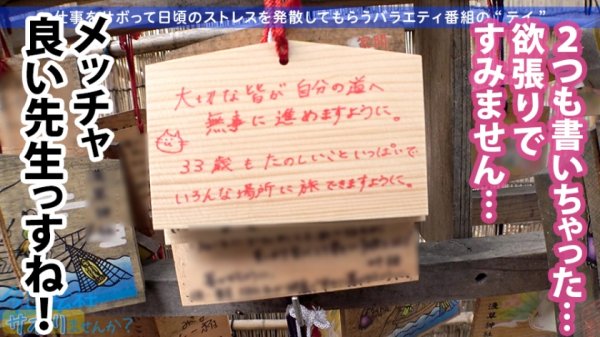 仕事をサボって日頃のストレスを発散してもらうバラエティ番組の“テイ”
2つも書いちゃった…
欲張りで
すみません…
大切な皆が自分の道へ
無事に進めますように。
33歳もたのしいこといっぱいで
いろんな場所に旅できますように。
メッチャ
良い先生っすね！
ませんか？
浅草神社